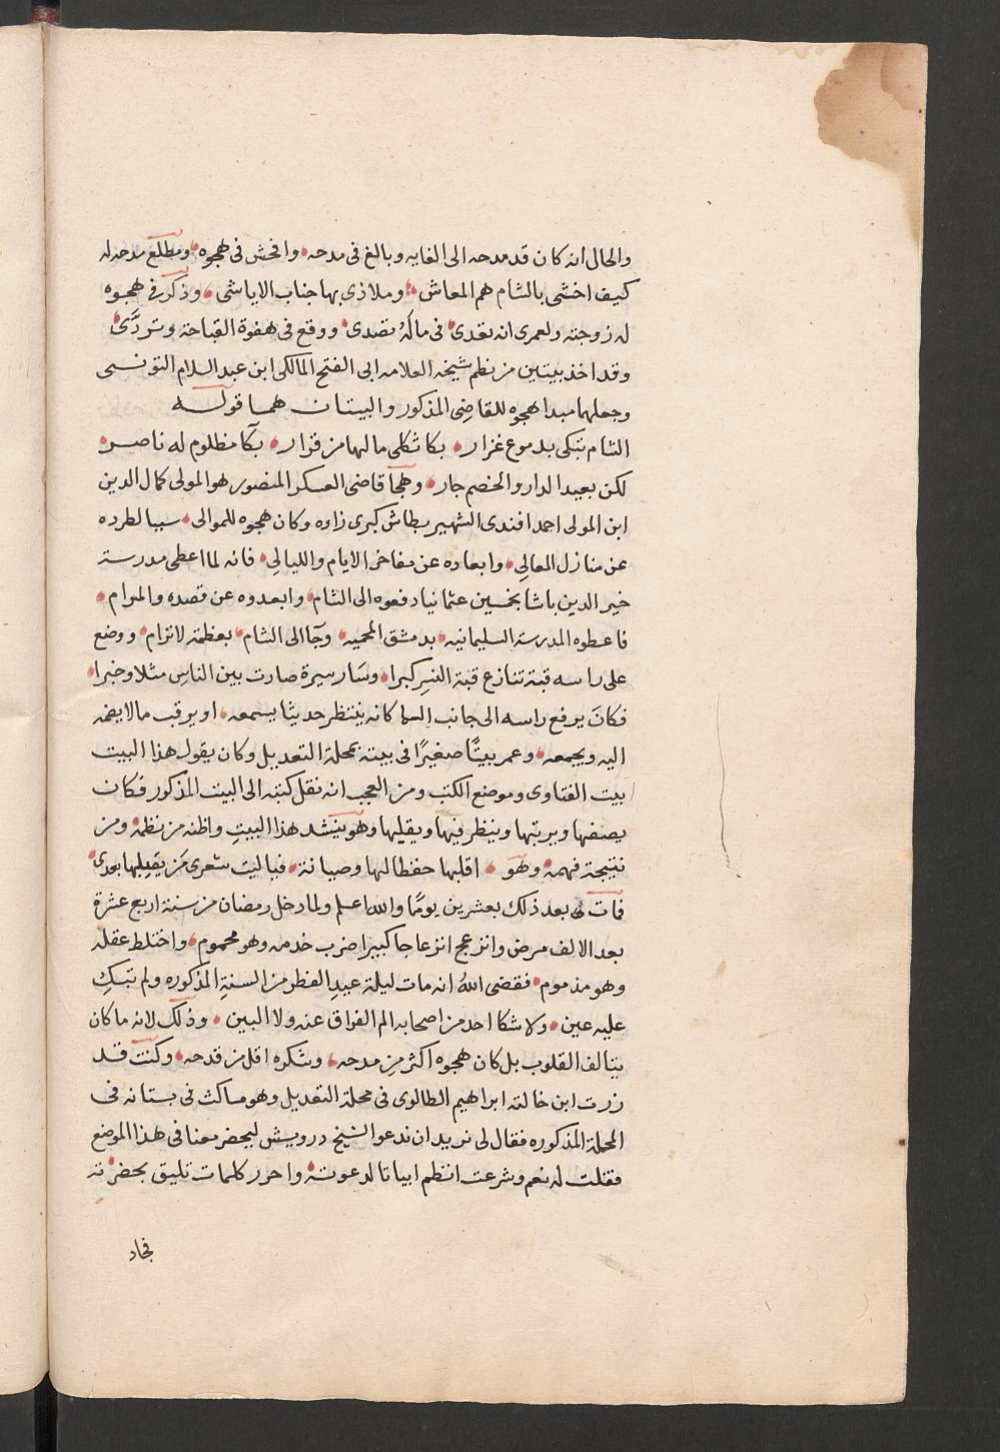 والحال انه كان قد مدحه الى الغايه وبالغ فى مدحه وافحش فى هجوه ومطلع مدحه له
كيف اخشى بالشام هم المعاش وملاذى بها جناب الاياشى وذكر فى هجوه
له زوجته ولعمرى انه تعدى فى ماله تصدى ووقع فى هفوة القباحة وتردَّى
وقد اخذ بيتين من نظم شيخه العلامه ابى الفتح المالكى ابن عبد السلام التونسى
وجعلهما مبدا هجوه للقاضى المذكور والبيتان هما قوله
الشام تبكى بدموع غزار بكا ثكلى مالها من قرار بكا مظلوم له ناصر
لكن بعيد الدار والخصم جار وهجا قاضى العسكر المنصور هو المولى كمال الدين
ابن المولى احمد افندى الشهير بطاش كبرى زاوه وكان هجوه للموالى سببا لطرده
عن منازل المعالى وابعاده عن مفاخر الايام والليالى فانه لما اعطى مدرسة
خير الدين باشا بخمسين عثمانيا دفعوه الى الشام وابعدوه عن قصده والمرام
فاعطوه المدرسة السليمانيه بدمشق المحميه وجآ الى الشام بعظمة لاترام ووضع
على راسه قبة تنازع قبة النسر كبرا وسار سيرة صارت بين الناس مثلا وخبرا
فكان يرفع راسه الى جانب السما كانه ينتظر حديثا يسمعه او يرقب مالا يضمه
اليه ويجمعه وعمر بيتًا صغيرًا فى بيته بمحلة التعديل وكان يقول هذا البيت
بيت الفتاوى وموضع الكتب ومن العجب انه نقل كتبه الى البيت المذكور فكان
يصفها ويرتبها وينظر فيها ويقلبها وهو ينشد هذا البيت واظنه من نظمه ومن
نتيجة فهمه وهو اقلبها حفظا لها وصيانة فيا ليت شعرى من يقلبها بعدى
فات بعد ذلك بعشرين يومًا والله اعلم ولما دخل رمضان من سنة اربع عشرة
بعد الالف مرض وانزعج انزعاجا كبيرا ضرب خدمه وهو محموم واختلط عقله
وهو مذموم فقضى الله انه مات ليلة عيد الفطر من السنة المذكوره ولم تبك
عليه عين ولا شكا احد من اصحابه الم الفراق عنه ولا البين وذلك لانه ما كان
يتالف القلوب بل كان هجوه اكثر من مدحه وشكره اقل من قدحه وكنت قد
زرت ابن خالته ابراهيم الطالوى فى محلة التعديل وهو ماكث فى بستانه فى
المحلة المذكوره فقال لى نريد ان ندعو الشيخ درويش ليحضر معنا فى هذا الموضع
فقلت له نعم وشرعت انظم ابياتا لدعوته واحرر كلمات تليق بحضرته
فجاد